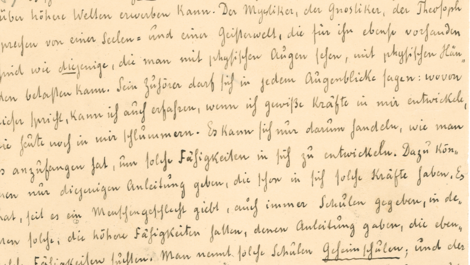 über höhere Welten erwerben kann. Der Mystiker, der Gnostiker, der Theosoph
sprechen von einer Seelen= und einer Geisterwelt, die für ihn ebenso vorhanden
sind wie diejenige, die man mit physischen Augen sehen, mit physischen Hän-
den betasten kann. Sein Zuhörer darf sich in jedem Augenblicke sagen: wovon
dieser spricht, kann ich auch erfahren, wenn ich gewisse Kräfte in mir entwickele,
die heute noch in mir schlummern. Es kann sich nur darum handeln, wie man
es anzufangen hat, um solche Fähigkeiten in sich zu entwickeln. Dazu kön-
nen nur diejenigen Anleitung geben, die schon in sich solche Kräfte haben. Es
hat, seit es ein Menschengeschlecht giebt, auch immer Schulen gegeben, in de-
nen solche, die höhere Fähigkeiten hatten, denen Anleitung gaben, die eben-
solche Fähigkeiten suchten. Man nennt solche Schulen Geheimschulen; und der